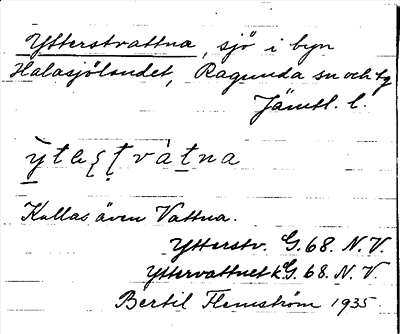 Ytterstvattna, sjö i byn
Halasjölandet, Ragunda sn och tg
Jämtl. l.
Kallas även Vattna.
Ytterstv. G. 68. N. V.
Yttervattnet k G. 68. N. V
Bertil Flemström 1935.